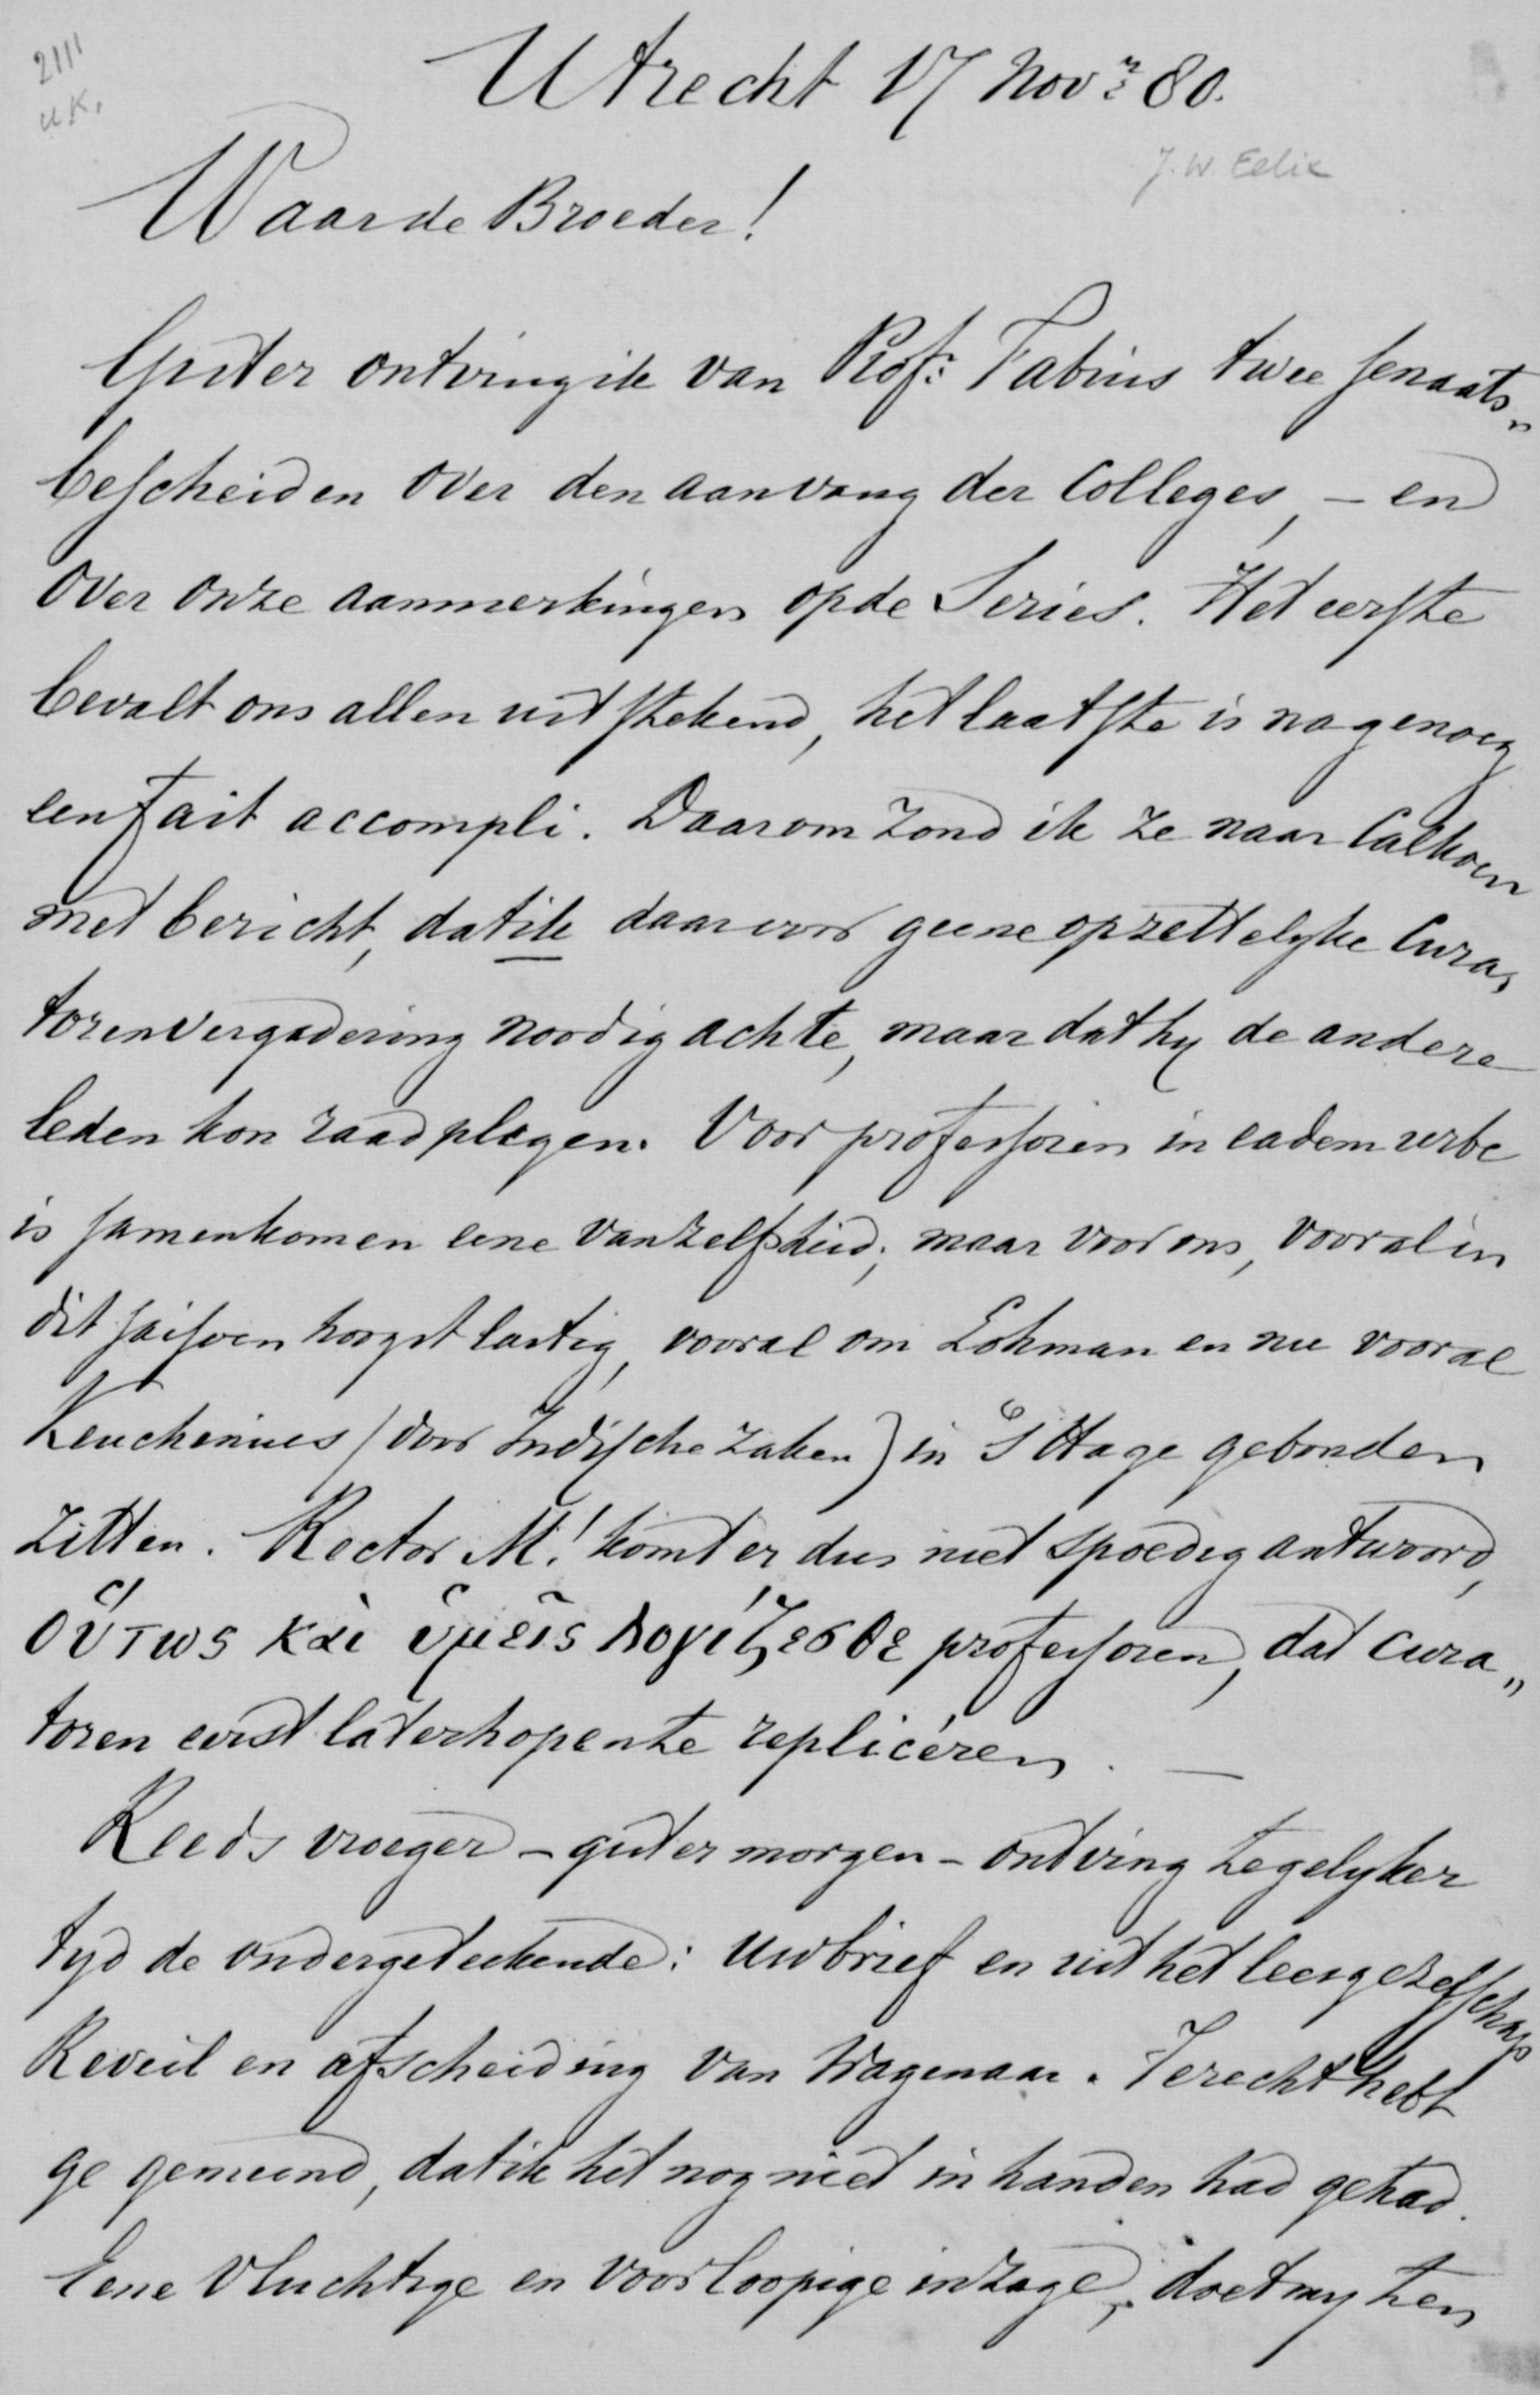 2111
u.K.
Utrecht 17 Novr 80.
J. W Felix
Waarde Broeder!
Gister ontving ik van Prof. Fabius twee senaats„
bescheiden over den aanvang der Colleges, – en
over onze aanmerkingen op de Series. Het eerste
bevalt ons allen uitstekend, het laatste is nagenoeg
een fait accompli. Daarom zond ik ze naar Calkoen
met bericht, dat ik daarvoor geene opzettelyke Cura„
torenvergadering noodig achte, maar dat hy de andere
leden kon raadplegen. Voor professoren in eadem urbe
is samenkomen eene vanzelfsheid; maar voor ons, vooral in
dit saisoen hoogst lastig, vooral om Lohman en nu vooral
Keuchenius (door Indische zaken) in 's Hage gebonden
zitten. Rector M.! komt er dus niet spoedig antwoord,
οὕτως καὶ ὑμεῖς λογίζεσθε professoren, dat Cura„
toren eerst later hopen te repliceren. —
Reeds vroeger – gister morgen – ontving tegelyker
tyd de ondergeteekende: Uw brief en uit het leesgezelschap
Reveil en afscheiding van Wagenaar. Terecht hebt
ge gemeend, dat ik het nog niet in handen had gehad.
Eene vluchtige en voorloopige inzage, doet my ten